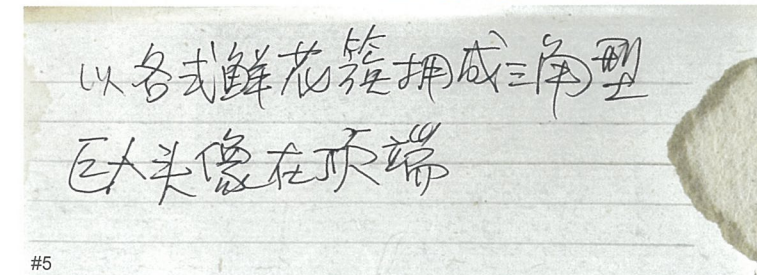 以各式鲜花簇拥成三角型
巨大头像在顶端
#5